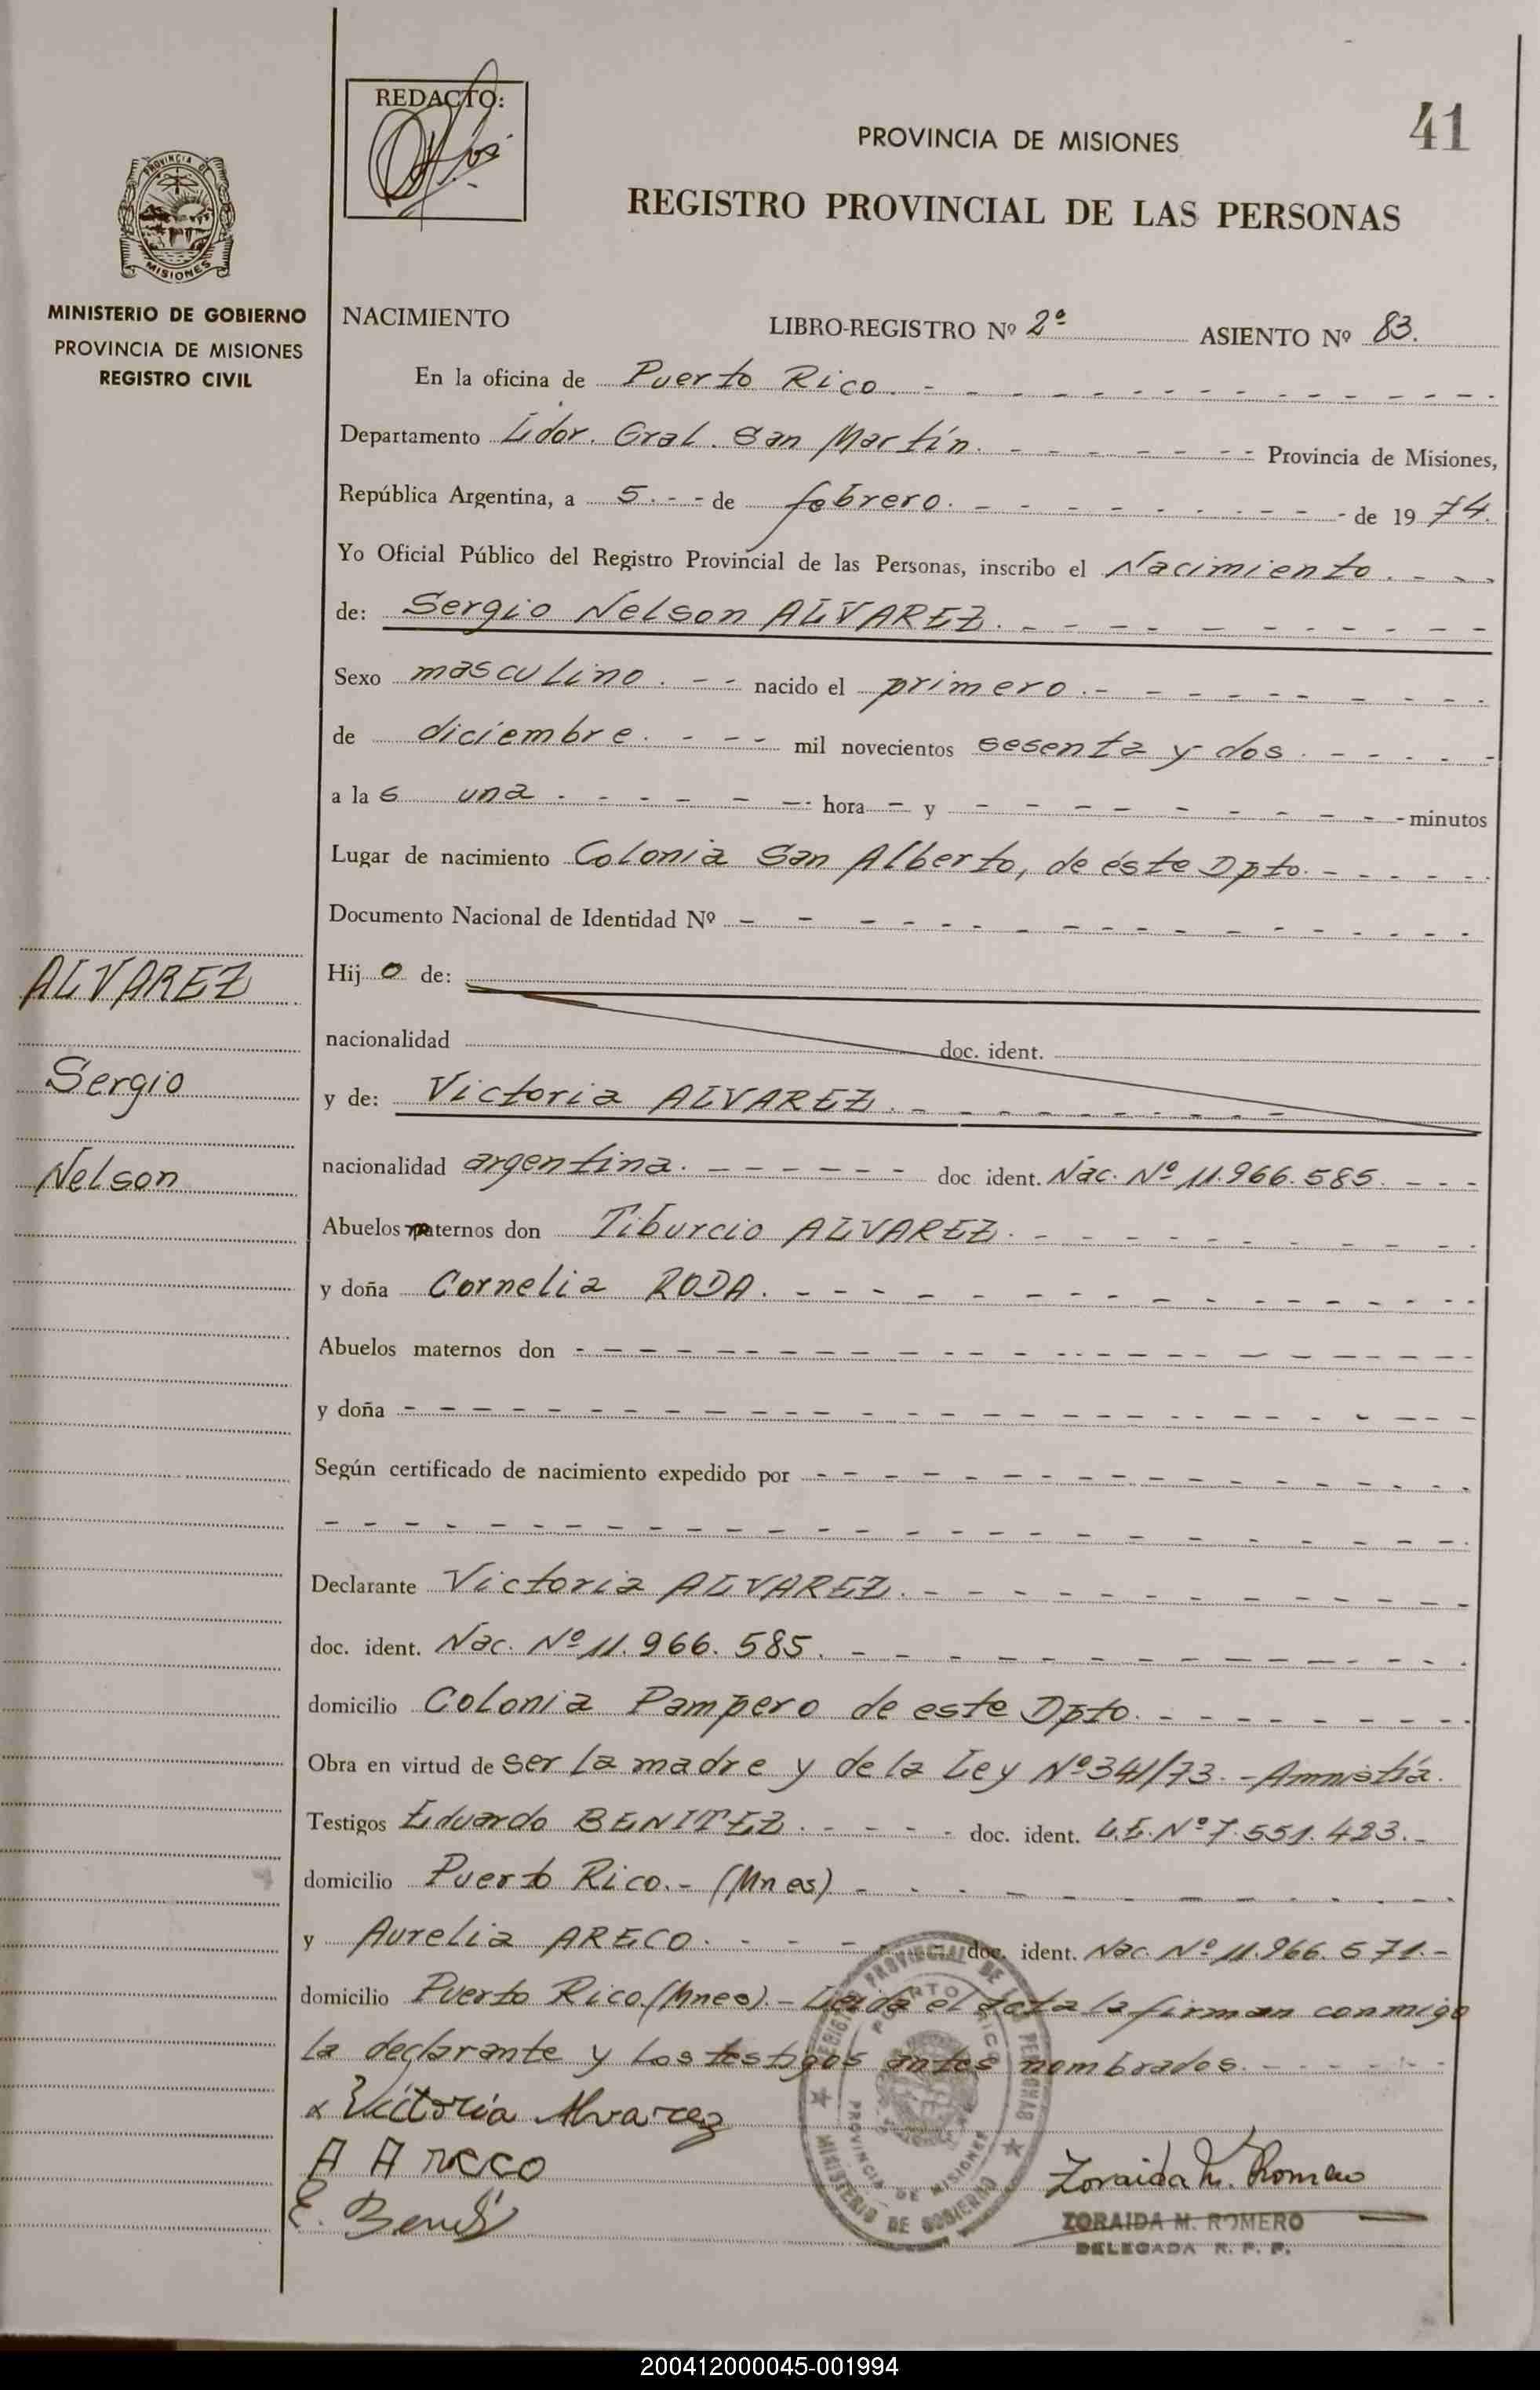 REDACTO:
41
PROVINCIA DE MISIONES
REGISTRO PROVINCIAL DE LAS PERSONAS
PROVINCIA DE
MISIONES
MINISTERIO DE GOBIERNO
PROVINCIA DE MISIONES
REGISTRO CIVIL
NACIMIENTO LIBRO-REGISTRO Nº 2º ASIENTO Nº 83.
En la oficina de Puerto Rico
Departamento Lidor. Gral. San Martín. Provincia de Misiones,
República Argentina, a 5. de febrero. de 1974.
Yo Oficial Público del Registro Provincial de las Personas, inscribo el Nacimiento.
de: Sergio Nelson ALVAREZ.
Sexo masculino. nacido el primero.
de diciembre. mil novecientos sesenta y dos.
a la s una hora y minutos
Lugar de nacimiento Colonia San Alberto, de éste Dpto.
Documento Nacional de Identidad Nº
Hijo de:
nacionalidad doc. ident.
y de: Victoria ALVAREZ.
nacionalidad argentina. doc ident. Nac. Nº 11.966.585.
Abuelos maternos don Tiburcio ALVAREZ.
y doña Cornelia RODA.
Abuelos maternos don
y doña
Según certificado de nacimiento expedido por
Declarante Victoria ALVAREZ.
doc. ident. Nac. Nº 11.966.585.
domicilio Colonia Pampero de este Dpto.
Obra en virtud de ser la madre y de la Ley Nº 341/73.-Amnistía.
Testigos Eduardo BENITEZ. doc. ident. L.E. Nº 7.551.423.-
domicilio Puerto Rico.- (Mnes)
y Aurelia ARECO. doc. ident. Nac. Nº 11.966.571.-
domicilio Puerto Rico.(Mnes).- Leída el acta la firman conmigo
la declarante y los testigos antes nombrados.
Victoria Alvarez
A Areco
E. Benitez
Zoraida M. Romero
ZORAIDA M. ROMERO
DELEGADA R. P. P.
REGISTRO PROVINCIAL DE LAS PERSONAS
PUERTO RICO
PROVINCIA DE MISIONES
MINISTERIO DE GOBIERNO
ALVAREZ
Sergio
Nelson
200412000045-001994